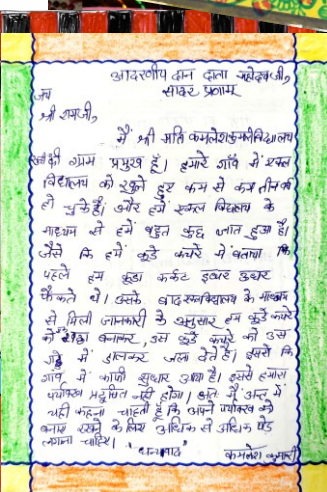 आदरणीय दान दाता महेदवजी,
सादर प्रणाम
जय
श्री रामजी,
मैं श्री मति कमलेश कुमारी विद्यालय
की ग्राम प्रमुख हूं। हमारे गाँव में एकल
विद्यालय को खुले हुए कम से कम तीन वर्ष
हो चुके हैं। और हमें एकल विद्यालय के
माध्यम से हमें बहुत कुछ ज्ञात हुआ है।
जैसे कि हमें कुडे कचरे में बताया कि
पहले हम कुडा कर्कट इधर उधर
फेंकते थे। उसके बाद एकल विद्यालय के माध्यम
से मिली जानकारी के अनुसार हम कुडे कचरे
को गड्ढा बनाकर, उस कुडे कचरे को उस
गड्ढे में डालकर जला देते हैं। इससे कि
गांव में काफी सुधार आया है। इससे हमारा
पर्यावरण प्रदुषित नहीं होगा। अंत में अन्त में
यही कहना चाहती हूँ कि अपने पर्यावरण को
बनाए रखने के लिए अधिक से अधिक पेड़
लगाना चाहिए।
"धन्यवाद"
कमलेश कुमारी